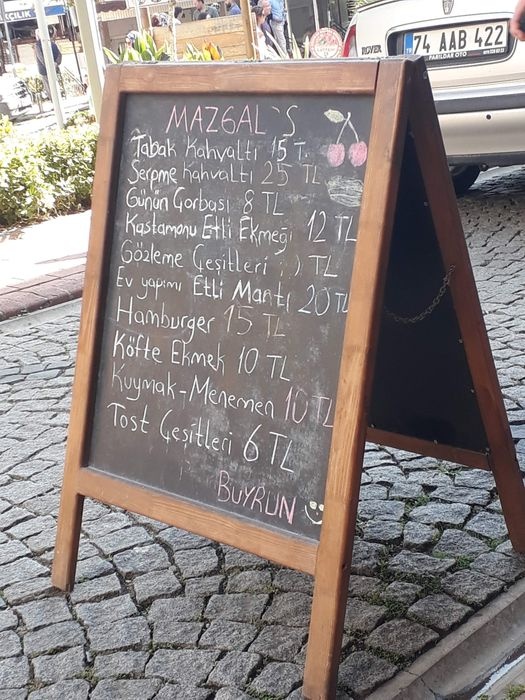 AÇILIK
ROVER
TR 74 AAB 422
PARILDAR OTO
MAZGAL'S
Tabak Kahvaltı 15 T
Serpme Kahvaltı 25 TL
Günün Çorbası 8 TL
Kastamonu Etli Ekmeği 12 TL
Gözleme Çeşitleri ;) TL
Ev yapımı Etli Mantı 20 TL
Hamburger 15 TL
Köfte Ekmek 10 TL
Kuymak-Menemen 10 TL
Tost Çeşitleri 6 TL
BUYRUN